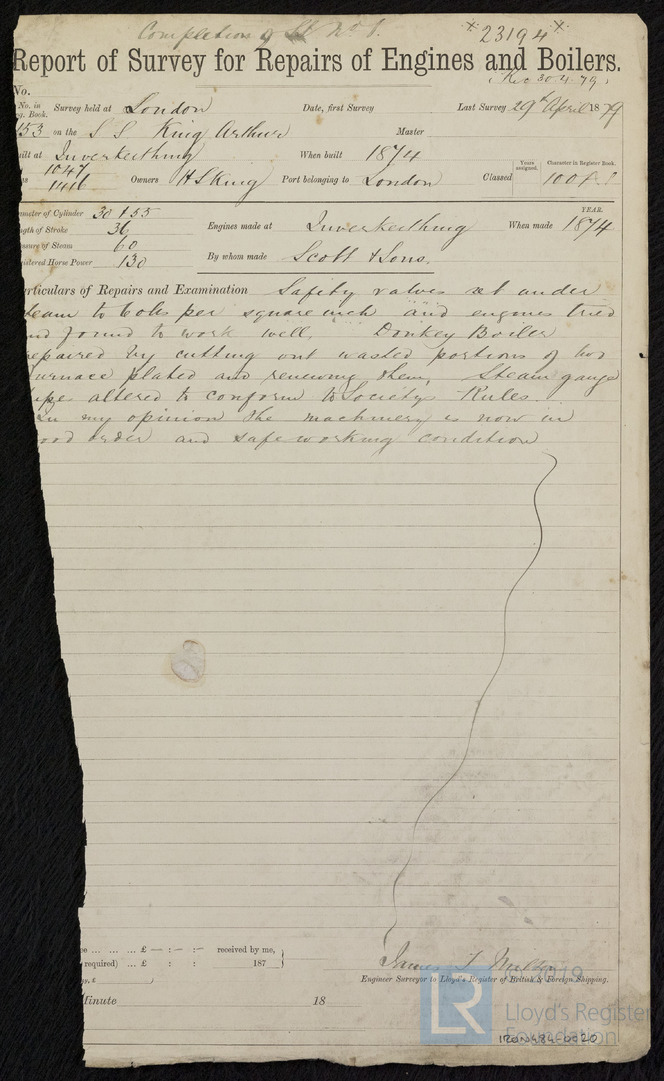 Completion of No 1.
23194
Report of Survey for Repairs of Engines and Boilers.
(Rec 30.4.79)
No.
No. in Survey held at London Date, first Survey Last Survey 29th April 1879
g. Book.
153 on the S S King Arthur Master
uilt at Inverkeithing When built 1874
1047
1446 Owners H S King Port belonging to London Classed Years assigned. Character in Register Book.
100
meter of Cylinder 30 & 55
ngth of Stroke 36 Engines made at Inverkeithing When made YEAR. 1874
essure of Steam 60
istered Horse Power 130 By whom made Scott & Sons.
rticulars of Repairs and Examination Safety valves set under
team to 60lbs per square inch and engines tried
nd found to work well. Donkey Boiler
epaired by cutting out wasted portions of two
urnace plates and renewing them, Steam gauge
ipe altered to conform to Society Rules.
In my opinion the machinery is now in
ood order and safe working condition
ee ... ... ... £ — : — : — received by me,
required) ... £ : : 187
James T Milton
Engineer Surveyor to Lloyd's Register of British & Foreign Shipping.
Minute 18
© 2019
LR
Lloyd's Register
Foundation
IRON484-0020